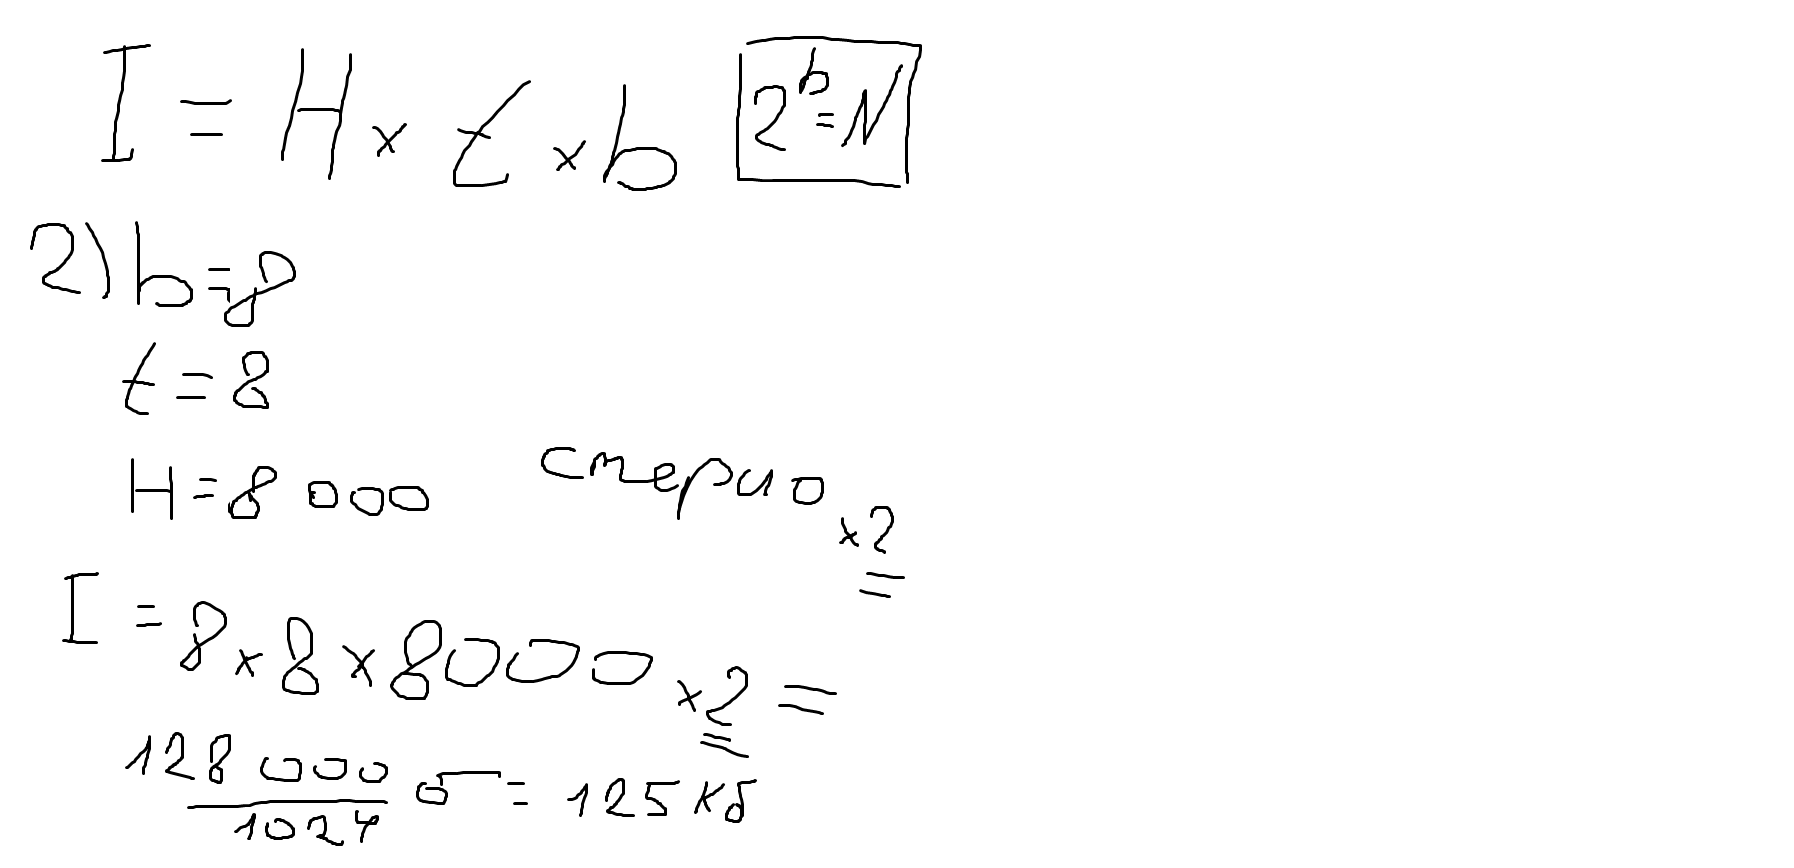 I = H × t × b 2^b = N
2) b = 8
t = 8
H = 8 000 стерио ×2
I = 8 × 8 × 8000 ×2 =
128 000 / 1024 б = 125 Кб